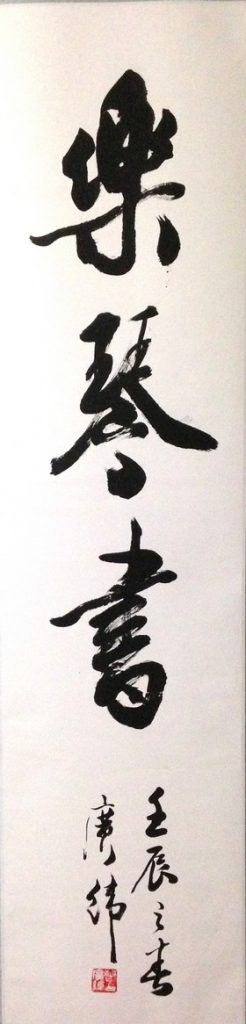 樂琴書
壬辰之春
廣緯